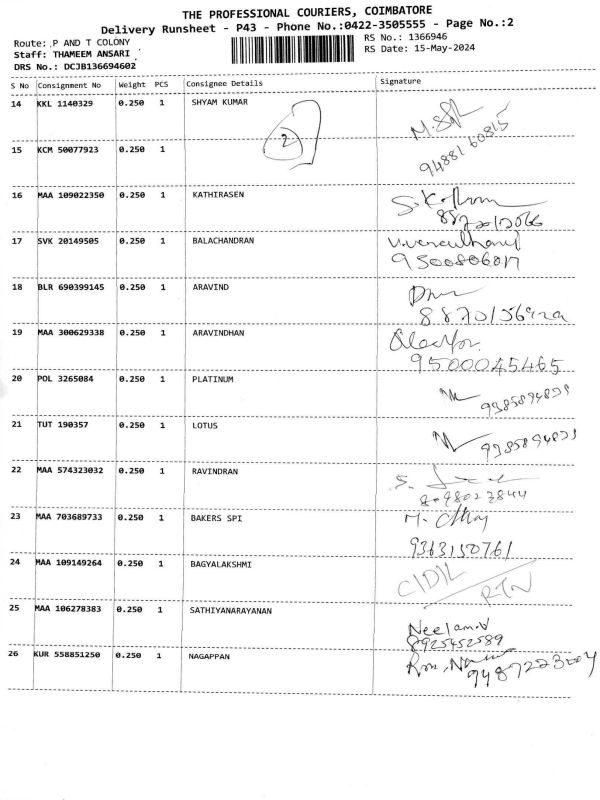 THE PROFESSIONAL COURIERS, COIMBATORE
Delivery Runsheet - P43 - Phone No.:0422-3505555 - Page No.:2
Route: P AND T COLONY
RS No.: 1366946
Staff: THAMEEM ANSARI
RS Date: 15-May-2024
DRS No.: DCJB136694602
S No Consignment No Weight PCS Consignee Details Signature
14 KKL 1140329 0.250 1 SHYAM KUMAR
2
9488160815
15 KCM 50077923 0.250 1
16 MAA 109022350 0.250 1 KATHIRASEN
17 SVK 20149505 0.250 1 BALACHANDRAN
18 BLR 690399145 0.250 1 ARAVIND
19 MAA 300629338 0.250 1 ARAVINDHAN
9500045465
20 POL 3265084 0.250 1 PLATINUM
21 TUT 190357 0.250 1 LOTUS
22 MAA 574323032 0.250 1 RAVINDRAN
8098027844
23 MAA 703689733 0.250 1 BAKERS SPI
9363150761
24 MAA 109149264 0.250 1 BAGYALAKSHMI
RTN
25 MAA 106278383 0.250 1 SATHIYANARAYANAN
8925452589
26 KUR 558851250 0.250 1 NAGAPPAN
9487223004